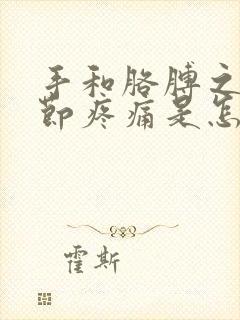 手和胳膊之
节疼痛是怎
霍斯